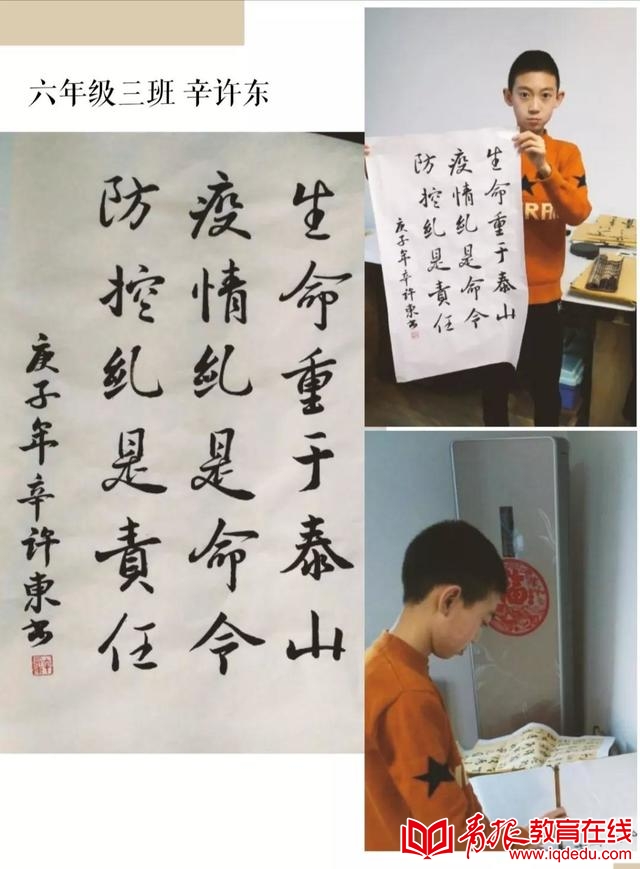 六年级三班 辛许东
生命重于泰山
疫情就是命令
防控就是責任
庚子年辛许東书
生命重于泰山
疫情就是命令
防控就是責任
庚子年辛许東书
青报教育在线
www.iqdedu.com